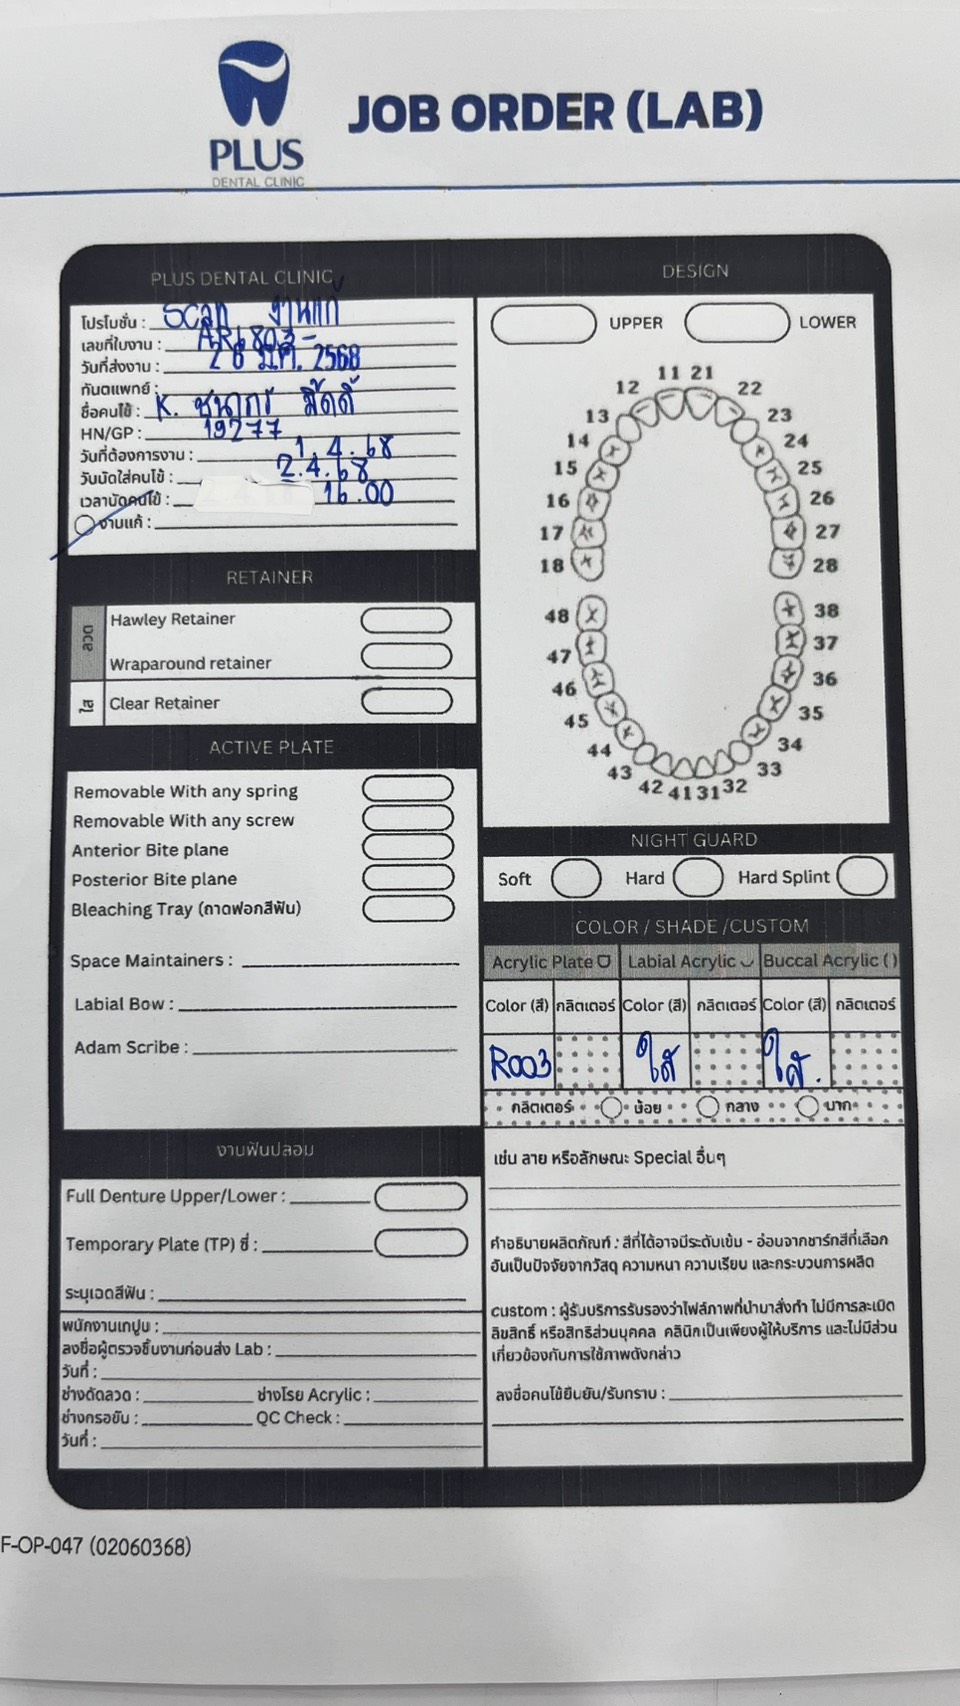 PLUS
DENTAL CLINIC
JOB ORDER (LAB)
PLUS DENTAL CLINIC
โปรโมชั่น : Scan งานแก้
เลขที่ใบงาน : AR6803-
วันที่ส่งงาน : 28 มี.ค. 2568
ทันตแพทย์ :
ชื่อคนไข้ : K. ชนากร
HN/GP : 19277
วันที่ต้องการงาน : 1.4.68
วันนัดใส่คนไข้ : 2.4.68
เวลานัดคนไข้ : 16.00
งานแก้ :
RETAINER
ลวด
Hawley Retainer
Wraparound retainer
ใส
Clear Retainer
ACTIVE PLATE
Removable With any spring
Removable With any screw
Anterior Bite plane
Posterior Bite plane
Bleaching Tray (ถาดฟอกสีฟัน)
Space Maintainers :
Labial Bow :
Adam Scribe :
งานฟันปลอม
Full Denture Upper/Lower :
Temporary Plate (TP) ซี่ :
ระบุเฉดสีฟัน :
พนักงานเทปูน :
ลงชื่อผู้ตรวจชิ้นงานก่อนส่ง Lab :
วันที่ :
ช่างดัดลวด : ช่างโรย Acrylic :
ช่างกรอขัน : QC Check :
วันที่ :
DESIGN
UPPER LOWER
11 21
12 22
13 23
14 24
15 25
16 26
17 27
18 28
48 38
47 37
46 36
45 35
44 34
43 33
42 41 31 32
NIGHT GUARD
Soft Hard Hard Splint
COLOR / SHADE /CUSTOM
Acrylic Plate Labial Acrylic Buccal Acrylic ( )
Color (สี) กลิตเตอร์ Color (สี) กลิตเตอร์ Color (สี) กลิตเตอร์
R003 ใส ใส.
กลิตเตอร์ น้อย กลาง มาก
เช่น ลาย หรือลักษณะ Special อื่นๆ
คำอธิบายผลิตภัณฑ์ : สีที่ได้อาจมีระดับเข้ม - อ่อนจากชาร์ทสีที่เลือก
อันเป็นปัจจัยจากวัสดุ ความหนา ความเรียบ และกระบวนการผลิต
custom : ผู้รับบริการรับรองว่าไฟล์ภาพที่นำมาสั่งทำ ไม่มีการละเมิด
ลิขสิทธิ์ หรือสิทธิส่วนบุคคล คลินิกเป็นเพียงผู้ให้บริการ และไม่มีส่วน
เกี่ยวข้องกับการใช้ภาพดังกล่าว
ลงชื่อคนไข้ยืนยัน/รับทราบ :
F-OP-047 (02060368)